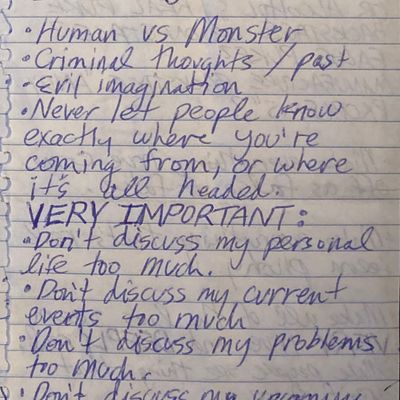 • Human vs Monster
• Criminal thoughts / past
• Evil imagination
• Never let people know
exactly where you're
coming from, or where
it's all headed.
VERY IMPORTANT:
• Don't discuss my personal
life too much.
• Don't discuss my current
events too much
• Don't discuss my problems
too much.
• Don't discuss my upcoming